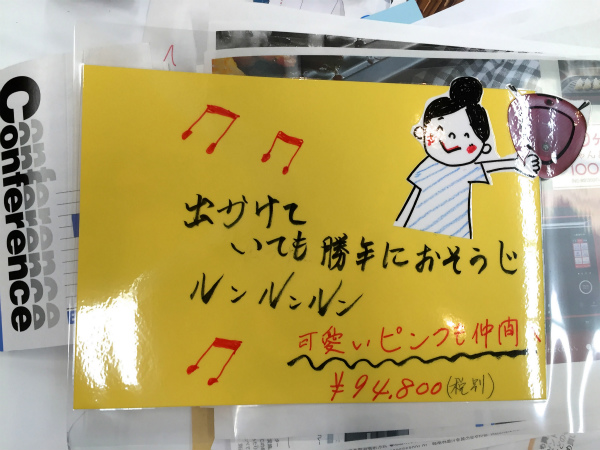 出かけて
いても勝手におそうじ
ルンルンルン
可愛いピンクも仲間入
¥94.800(税別)
Conference
Conference
Conference
100